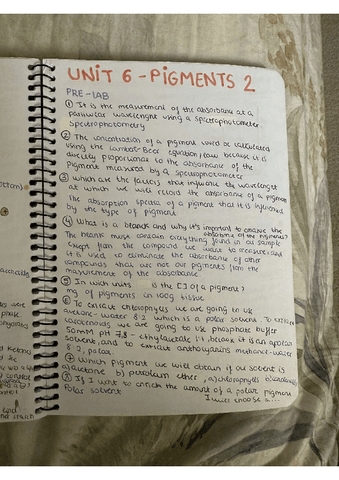 UNIT 6 - PIGMENTS 2
PRE-LAB
① It is the measurement of the absorbance at a
particular wavelenght using a spectrophotometer.
Spectrophotometry
② The concentration of a pigment would be calculated
using the Lambert-Beer equation/law because it is
directly proportional to the absorbance of the
pigment measured by a spectrophotometer
③ Which are the factors that influence the wavelenght
at which we will record the absorbance of a pigment
The absorption spectra of a pigment that is influenced
by the type of pigment
④ What is a blank and why it's important to measure the
absorbance of the pigments?
The blank must contain everything found in our sample
except from the compound we want to measure and
it is used to eliminate the absorbance of other
compounds that are not our pigments from the
measurement of the absorbance
⑤ In wich units is the [] of a pigment?
mg of pigments in 100g tissue
⑥ To extract chlorophylls we are going to use
acetone-water 8:2 which is a polar solvent. To extract
carotenoids we are going to use phosphate buffer
50mM pH 7,8 - ethylacetate 1:1 because it is an apolar
solvent, and to extract anthocyanins methanol-water
8:2, polar
⑦ Which pigment we will obtain if our solvent is
a) acetone b) petroleum ether, a) chlorophylls b)
⑧ If I want to enrich the amount of a polar pigment
I will choose a ...
Polar solvent
ottom)
phase
ketones
and